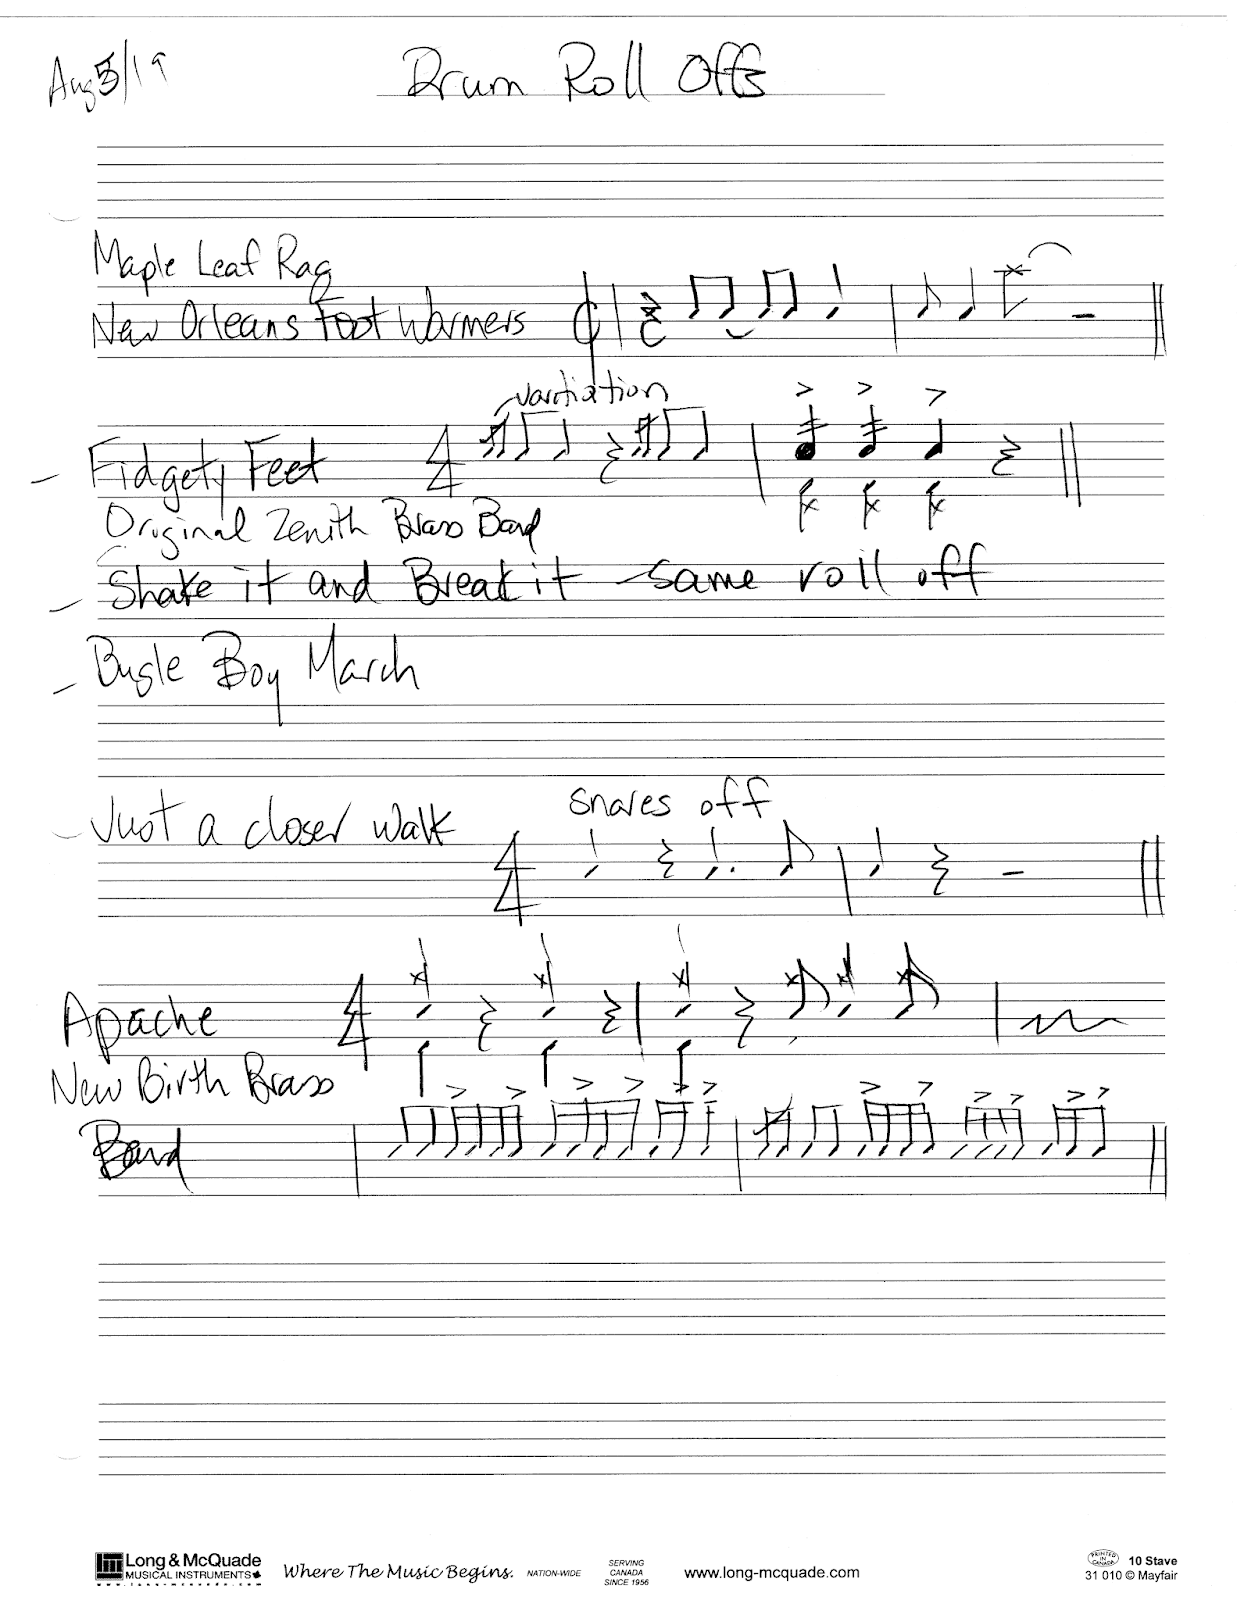 Aug 5/19
Drum Roll Offs
Maple Leaf Rag
New Orleans Foot Warmers
vartiation
4/4
- Fidgety Feet
Original Zenith Brass Band
- Shake it and Break it - same roll off
- Bugle Boy March
snares off
- Just a closer walk
4/4
Apache
4/4
New Birth Brass
Band
Long & McQuade
MUSICAL INSTRUMENTS
www.long-mcquade.com
Where The Music Begins.
NATION-WIDE
SERVING
CANADA
SINCE 1956
www.long-mcquade.com
PRINTED
IN
CANADA
10 Stave
31 010 © Mayfair